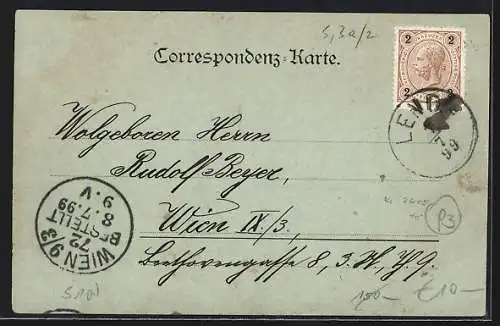 S, 3a/2
Correspondenz-Karte.
2 2
2 2
LEND
7
99
Wolgeboren Herrn
Rudolf Beyer,
Wien IX/3.
Beethovengasse 8, 3. St., Th. 9.
WIEN 9/3
72
BESTELLT
8.7.99
9.V
P3
150-
€10-